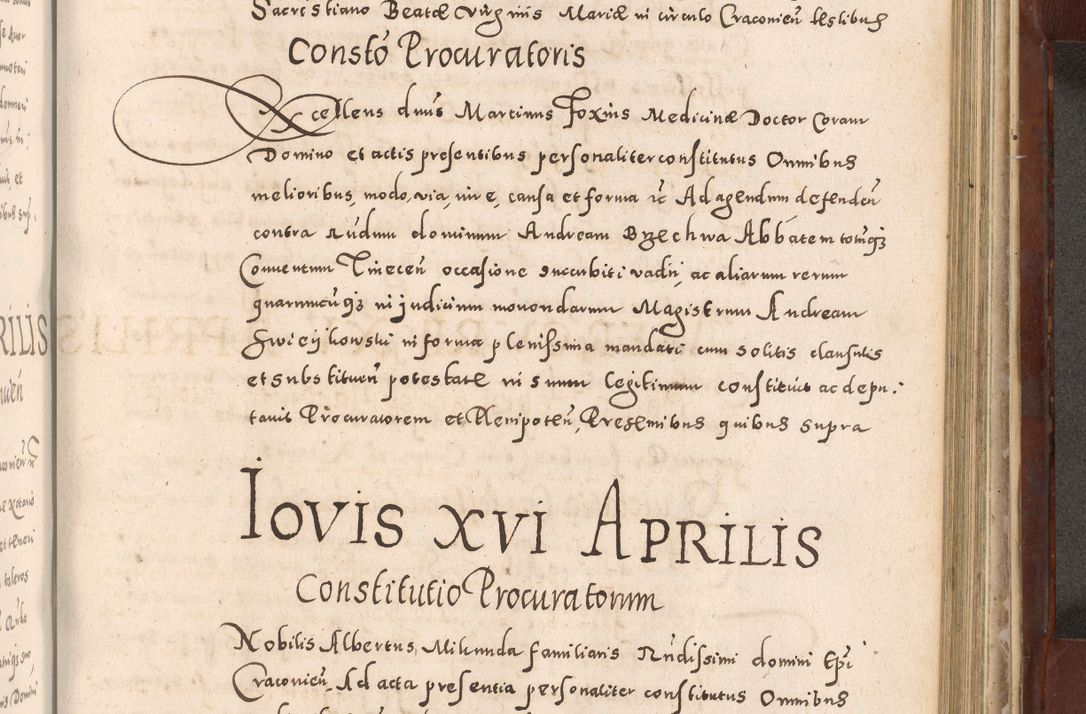 Sacristiano Beatæ Virginis Mariæ in circulo Craconieñ testibus
Constõ Procuratoris
Excellens dnus Martinus Foxius Medicinæ Doctor Coram
Domino et actis presentibus personaliter constitutus Omnibus
melioribus, modo, via, iure, causa et forma rc Ad agendum defendeñ
contra Rndum dominum Andream Brzechwa Abbatem totumq3
Conuentum Tinecen̄ occasione succubiti vadij, ac aliarum rerum
quarumcuq3 in judicium mouondarum Magistrum Andream
in forma plenissima mandati cum solitis clausulis
et substituen̄ potestate in suum legitimum constituit ac depu:
tauit Procuratorem et Plenipoten̄, Presentibus quibus supra
Iovis xvi Aprilis
Constitutio Procuratorum
Nobilis Albertus Milunda familiaris Rndissimi domini Epi
Craconien̄, Ad acta presentia personaliter constitutus Omnibus